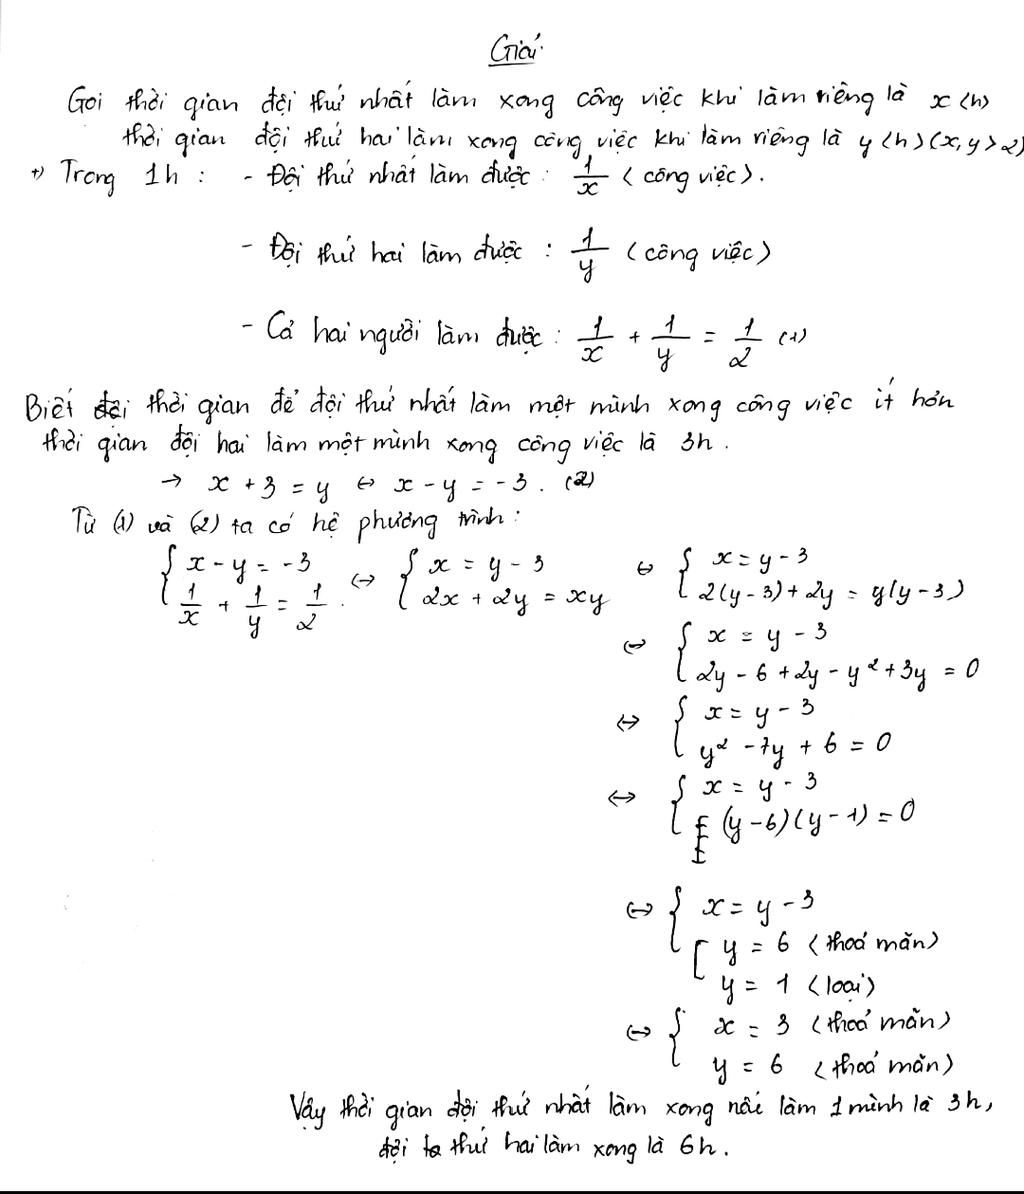 Giải
Gọi thời gian đội thứ nhất làm xong công việc khi làm riêng là x (h)
thời gian đội thứ hai làm xong công việc khi làm riêng là y (h) (x, y > 2)
+) Trong 1h : - Đội thứ nhất làm được : 1/x (công việc).
- Đội thứ hai làm được : 1/y (công việc)
- Cả hai người làm được : 1/x + 1/y = 1/2 (1)
Biết thời gian để đội thứ nhất làm một mình xong công việc ít hơn
thời gian đội hai làm một mình xong công việc là 3h.
→ x + 3 = y ⇔ x - y = -3. (2)
Từ (1) và (2) ta có hệ phương trình :
{ x - y = -3 ; 1/x + 1/y = 1/2 . ⇔ { x = y - 3 ; 2x + 2y = xy ⇔ { x = y - 3 ; 2(y - 3) + 2y = y(y - 3)
⇔ { x = y - 3 ; 2y - 6 + 2y - y² + 3y = 0
⇔ { x = y - 3 ; y² - 7y + 6 = 0
⇔ { x = y - 3 ; (y - 6)(y - 1) = 0
⇔ { x = y - 3
[ y = 6 (thoả mãn)
y = 1 (loại)
⇔ { x = 3 (thoả mãn)
y = 6 (thoả mãn)
Vậy thời gian đội thứ nhất làm xong nếu làm 1 mình là 3h,
đội thứ hai làm xong là 6h.